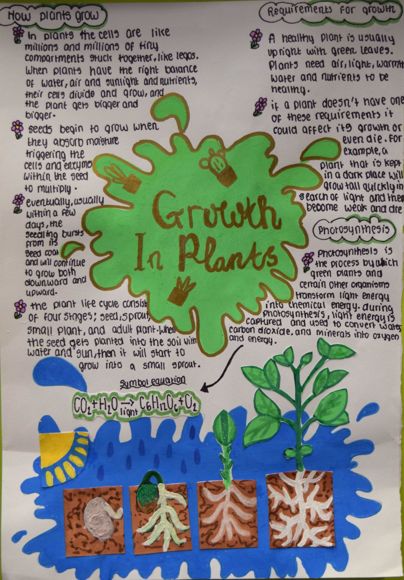 How plants grow
In plants the cells are like
millions and millions of tiny
compartments stuck together, like legos.
When plants have the right balance
of water, air and sunlight and nutrients,
their cells divide and grow, and
the plant gets bigger and
bigger.
seeds begin to grow when
they absorb moisture
triggering the
cells and enzymes
within the seed
to multiply.
eventually, usually
within a few
days, the
seedling bursts
from its
seed coat
and will continue
to grow both
downward and
upward.
the plant life cycle consists
of four stages; seed, sprout,
small plant, and adult plant. when
the seed gets planted into the soil with
water and sun, then it will start to
grow into a small sprout.
Growth
In Plants
Requirements for growth
A healthy plant is usually
upright with green leaves.
Plants need air, light, warmth
water and nutrients to be
healthy.
if a plant doesn't have one
of these requirements it
could affect its growth or
even die. For
example, a
plant that is kept
in a dark place will
grow tall quickly in
search of light and then
become weak and die
Photosynthesis
Photosynthesis is
the process by which
green plants and
certain other organisms
transform light energy
into chemical energy. during
photosynthesis, light energy is
captured and used to convert water,
carbon dioxide, and minerals into oxygen
and energy.
symbol equation
CO2+H2O→C6H12O6+O2
light